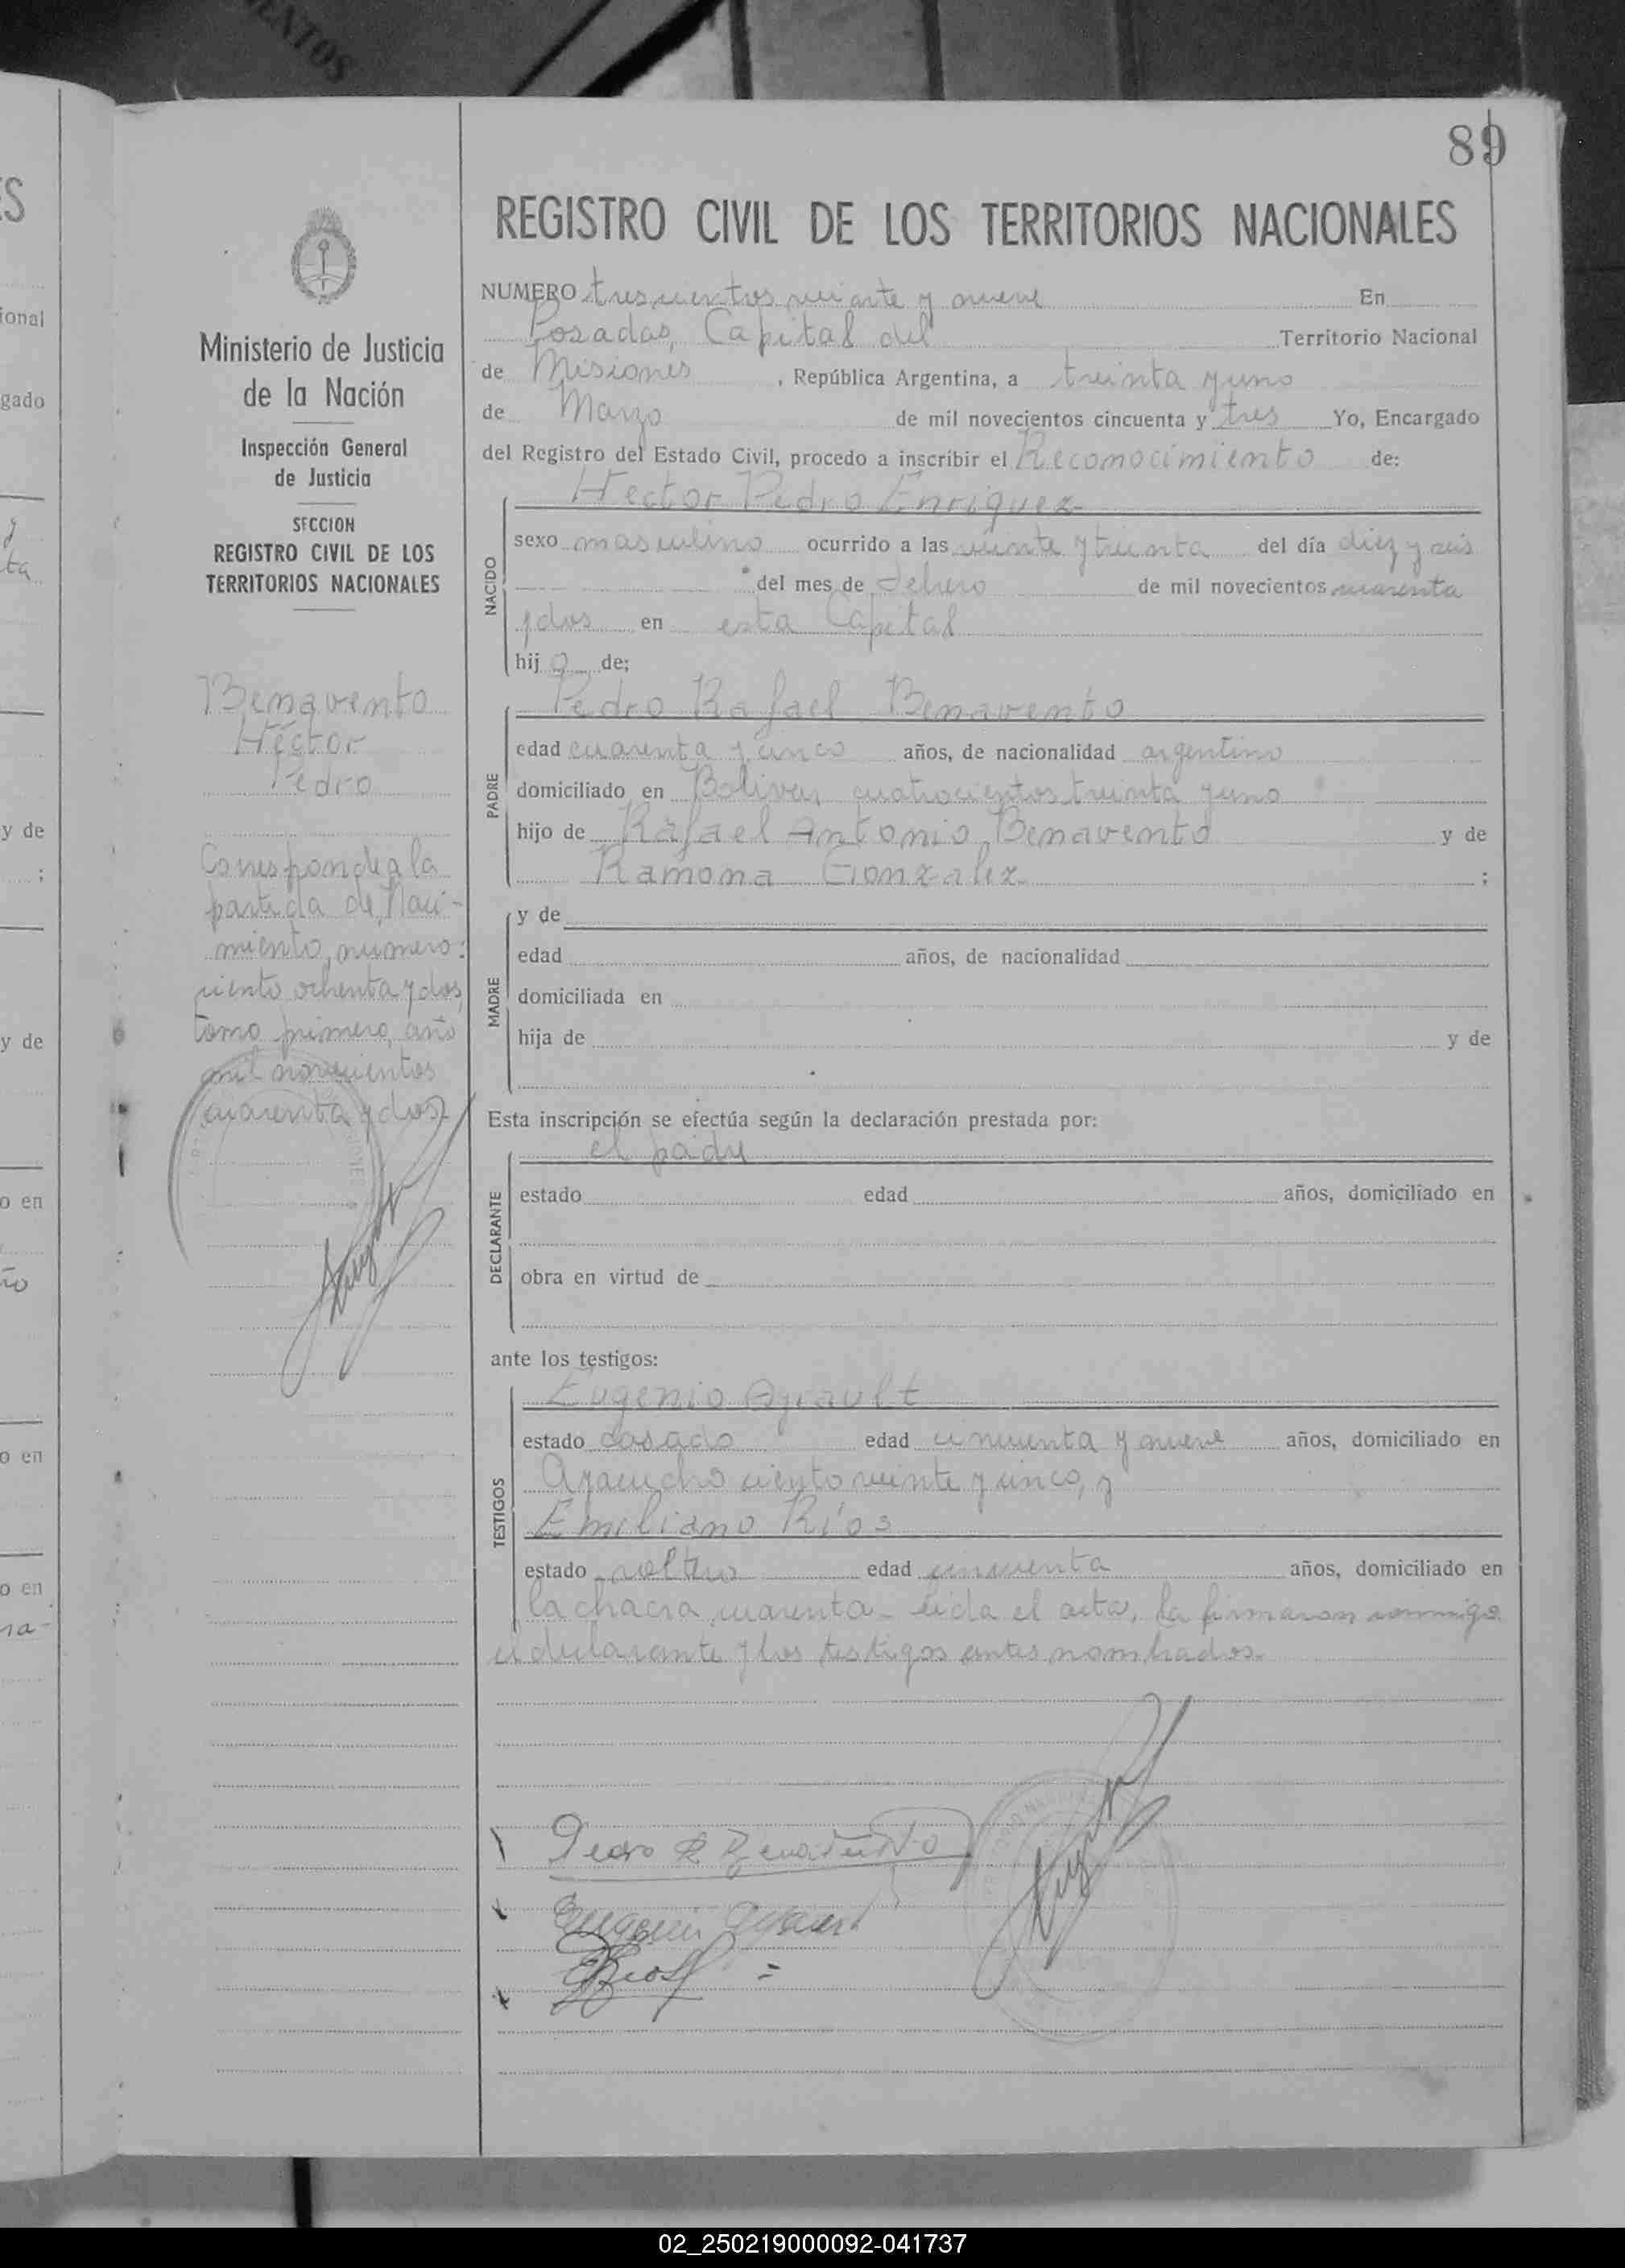 ENTOS
89
ES
ional
gado
y
ta
y de
;
y de
o en
ño
o en
o en
na-
Ministerio de Justicia
de la Nación
Inspección General
de Justicia
SECCION
REGISTRO CIVIL DE LOS
TERRITORIOS NACIONALES
Benavento
Héctor
Pedro
Corresponde a la
partida de Naci-
miento, numero:
ciento ochenta y dos,
tomo primero, año
mil novecientos
cuarenta y dos
REGISTRO CIVIL DE LOS TERRITORIOS NACIONALES
NUMERO trescientos veinte y nueve En
Posadas, Capital del Territorio Nacional
de Misiones , República Argentina, a treinta y uno
de Marzo de mil novecientos cincuenta y tres Yo, Encargado
del Registro del Estado Civil, procedo a inscribir el Reconocimiento de:
Hector Pedro Enriquez
NACIDO
sexo masculino ocurrido a las veinte y treinta del día diez y seis
del mes de febrero de mil novecientos cuarenta
y dos en esta Capital
hij o de;
PADRE
Pedro Rafael Benavento
edad cuarenta y cinco años, de nacionalidad argentino
domiciliado en Bolivar cuatrocientos treinta y uno
hijo de Rafael Antonio Benavento y de
Ramona Gonzalez ;
MADRE
y de
edad años, de nacionalidad
domiciliada en
hija de y de
Esta inscripción se efectúa según la declaración prestada por:
el padre
DECLARANTE
estado edad años, domiciliado en
obra en virtud de
ante los testigos:
TESTIGOS
Eugenio Ayrault
estado casado edad cincuenta y nueve años, domiciliado en
Ayacucho ciento veinte y cinco, y
Emiliano Ríos
estado soltero edad cincuenta años, domiciliado en
la chacra cuarenta - Leida el acta, la firmaron conmigo
el declarante y los testigos antes nombrados.
Pedro R Benavento
Eugenio Ayrault
E Rios
02_250219000092-041737